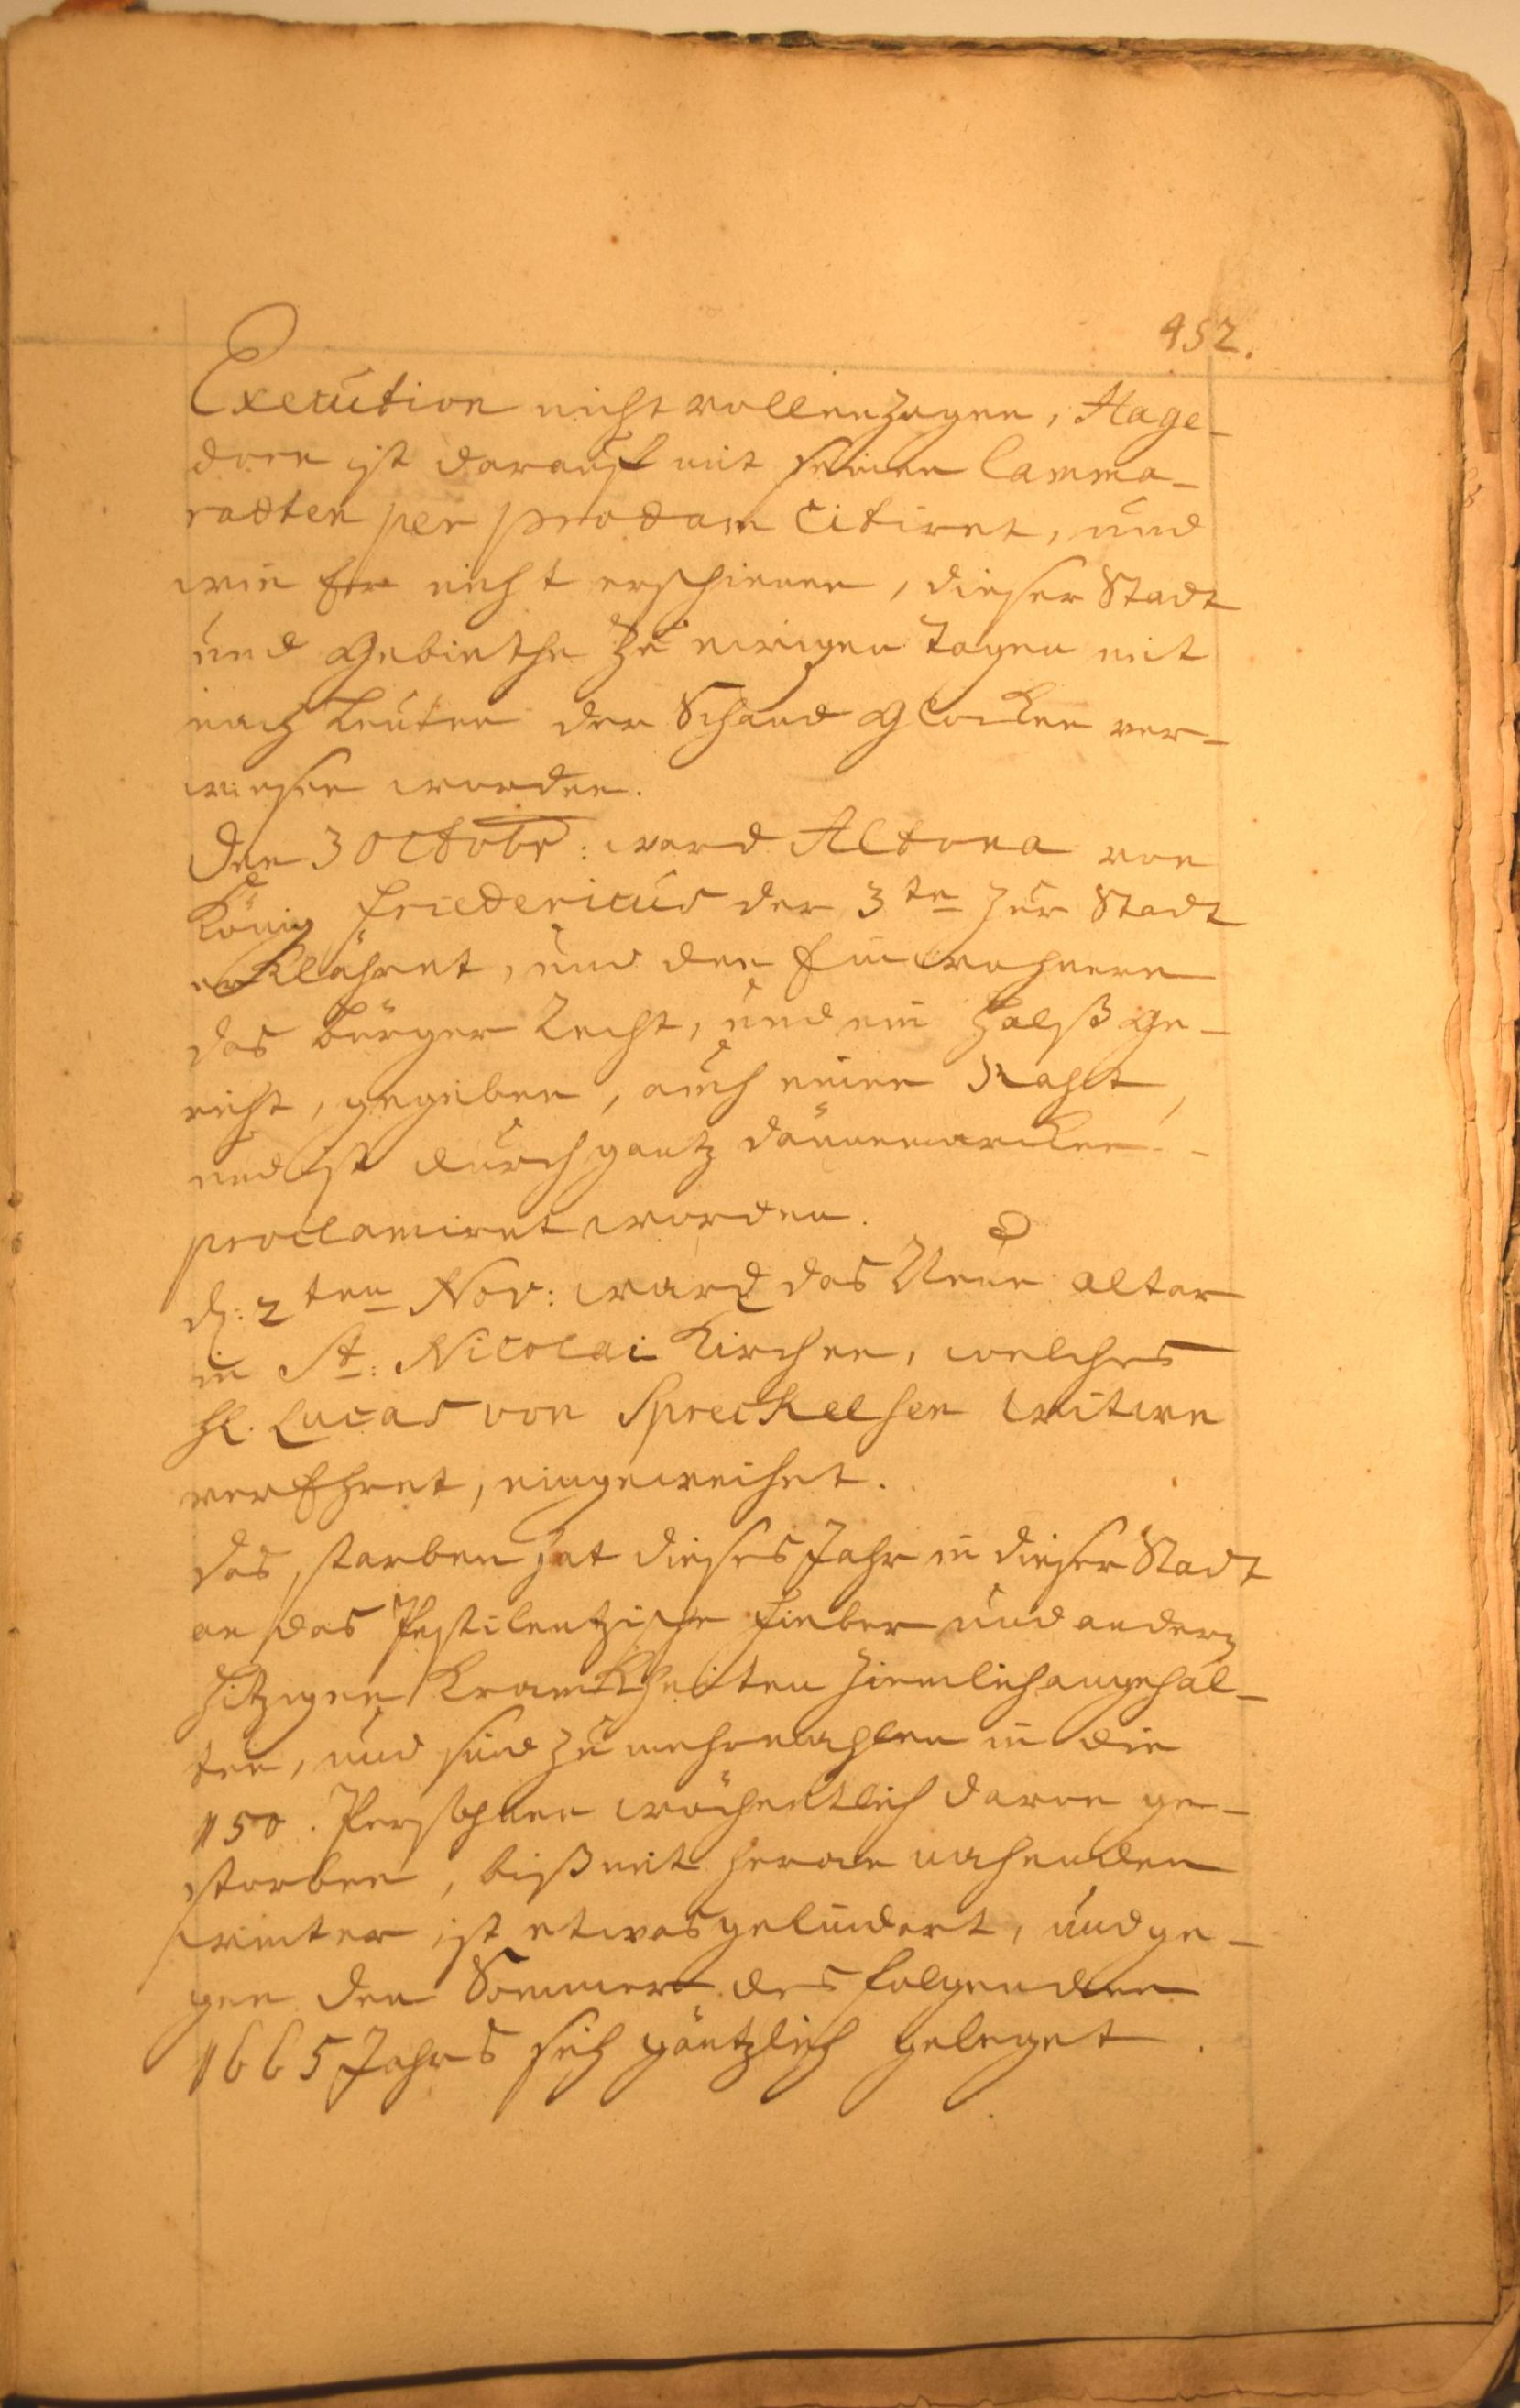 452.
Execution nicht vollenzogen, Hage-
dorn ist darauff mit seinen Camma-
radten per prodam citiret, und
wie Er nicht erschienen, dieser Stadt
und Gebiethe zu ewigen tagen mit
nach Leuten der Schand Glocken ver-
wiesen worden.
Den 3 Octobr: ward Altona von
König Friedericus der 3te zur Stadt
erklähret, und den Einwohnern
das bürger Recht, und ein Halß ge-
richt, gegeben, auch einen Raht,
und ist durch gantz Dännemarcken
proclamiret worden.
d: 2ten Nov: ward das Neue altar
in St: Nicolai Kirchen, welches
Hl. Lucas von Spreckelsen Witwe
verEhret, eingeweihet.
das starben hat dieses Jahr in dieser Stadt
an das Pestilentzische fieber und andern
hitzigen Kranckheiten ziemlich angehal-
ten, und sind zu mehrmahlen in die
150. Persohnen wöchentlich daran ge-
storben, biß mit heran nahenden
winter ist etwas gelindert, und ge-
gen den Sommer des folgenden
1665 Jahrs sich gäntzlich geleget.